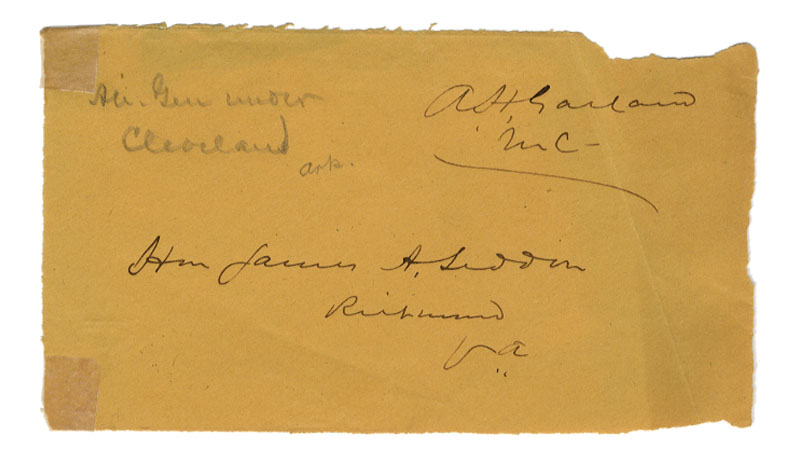 Att. Gen under
Cleveland
Ark.
A H Garland
MC -
Hon James A. Seddon
Richmond
Va